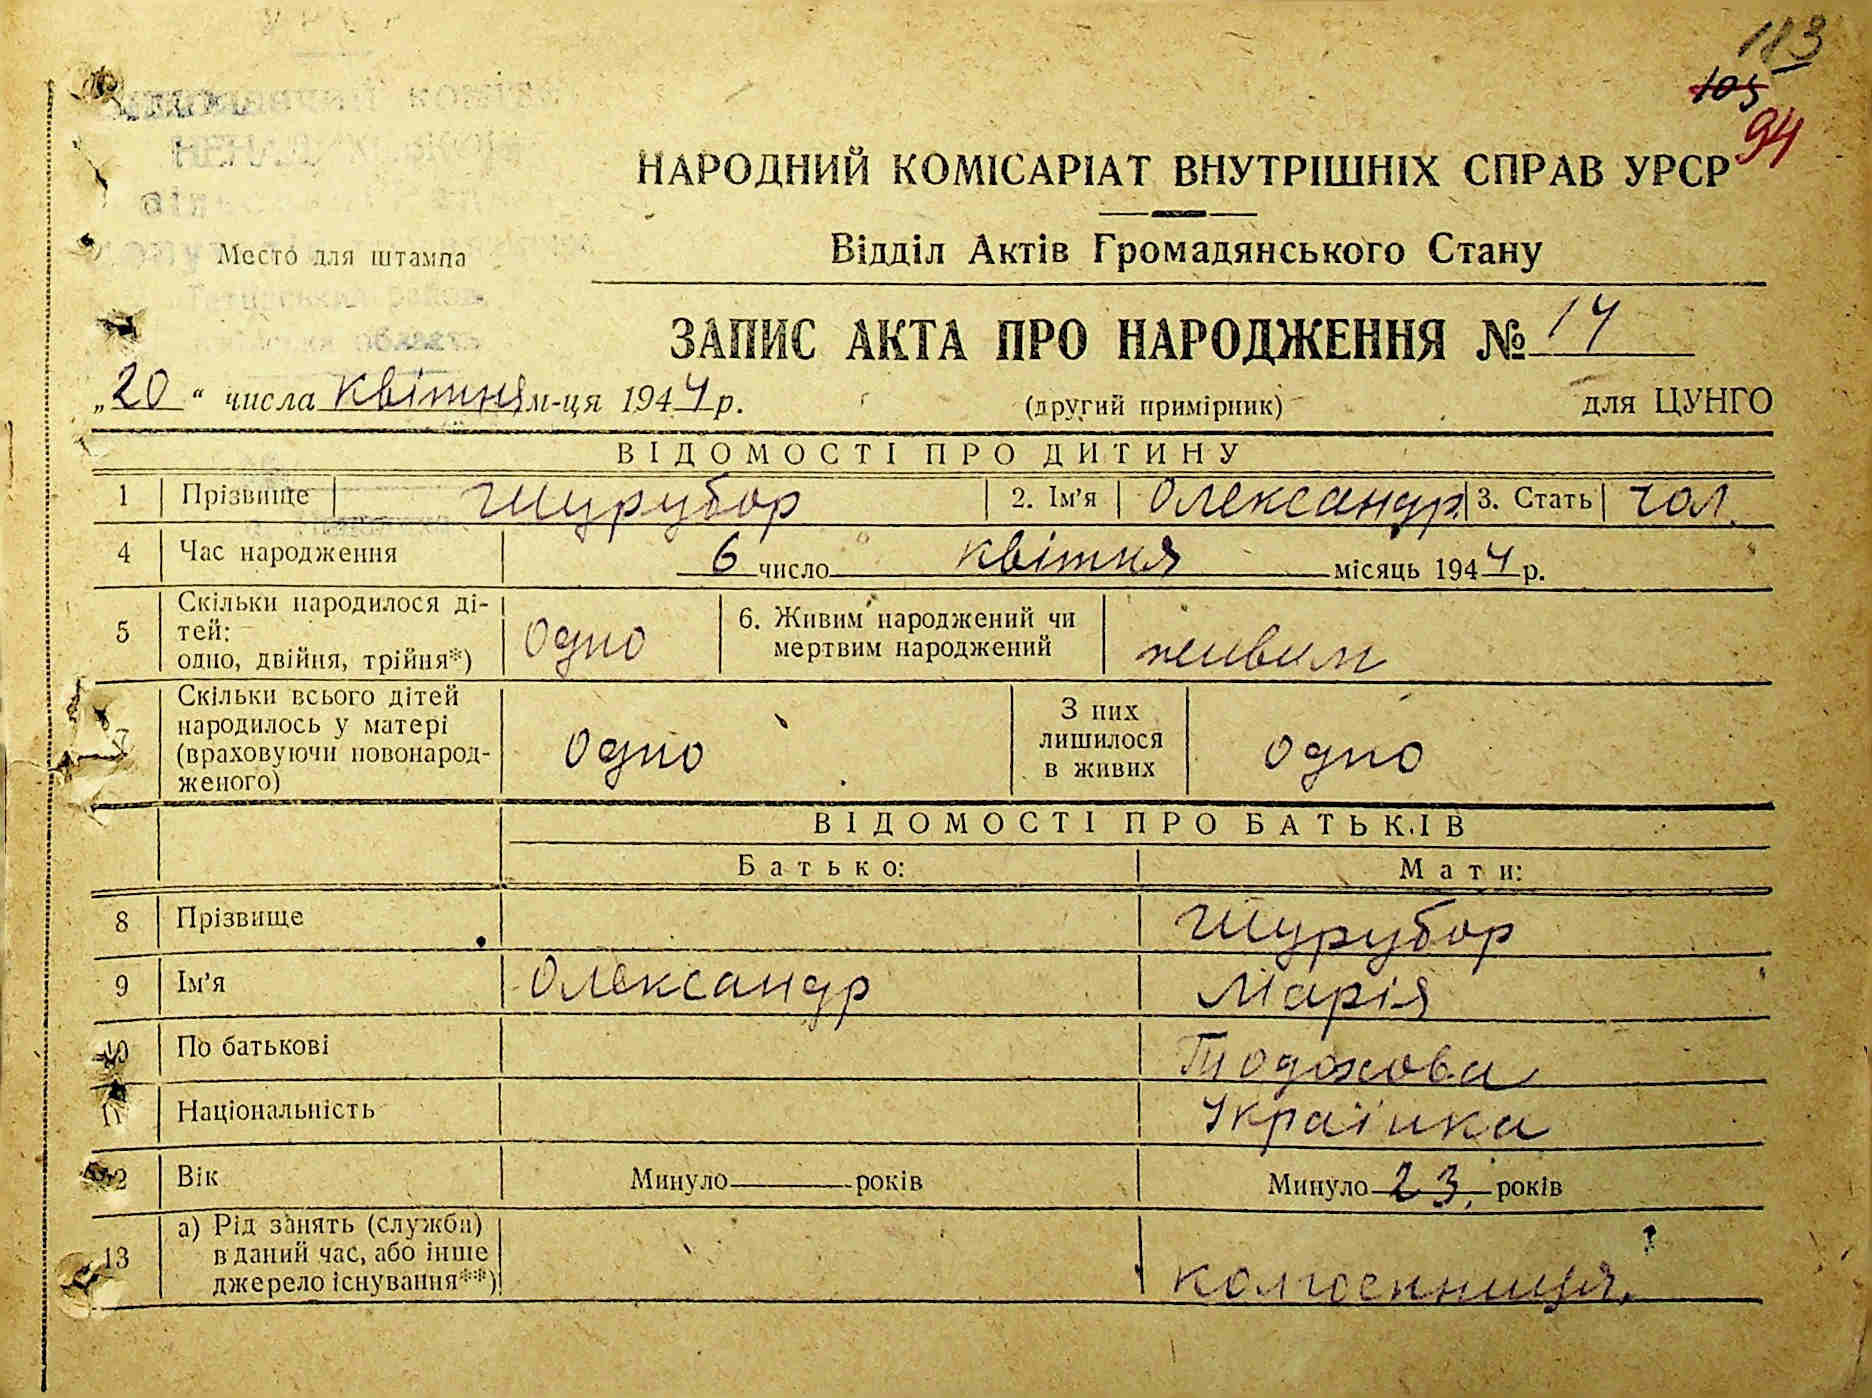 113
105
94
НАРОДНИЙ КОМІСАРІАТ ВНУТРІШНІХ СПРАВ УРСР
Відділ Актів Громадянського Стану
Место для штампа
область
ЗАПИС АКТА ПРО НАРОДЖЕННЯ № 14
„20“ числа квітня м-ця 1944 р. (другий примірник) для ЦУНГО
ВІДОМОСТІ ПРО ДИТИНУ
1 Прізвище Шурубор 2. Ім'я Олександр 3. Стать чол.
4 Час народження 6 число квітня місяць 1944 р.
5 Скільки народилося ді-
тей:
одно, двійня, трійня*) Одно 6. Живим народжений чи
мертвим народжений живим
7 Скільки всього дітей
народилось у матері
(враховуючи новонарод-
женого) одно З них
лишилося
в живих одно
ВІДОМОСТІ ПРО БАТЬКІВ
Батько: Мати:
8 Прізвище Шурубор
9 Ім'я Олександр Марія
По батькові
Національність Українка
12 Вік Минуло років Минуло 23 років
13 а) Рід занять (служби)
в даний час, або інше
джерело існування**) колгоспниця.